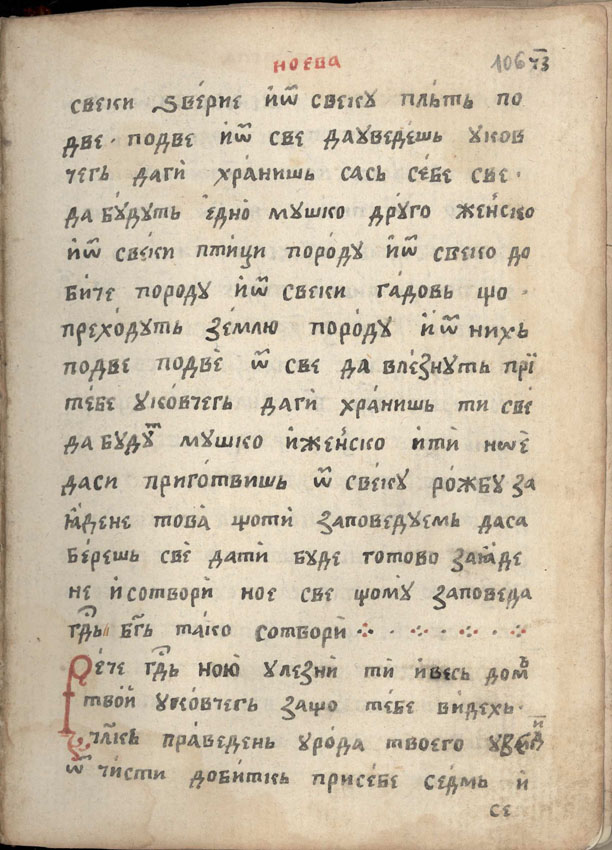 ноева 106 ч҃з
свеки ѕве́рие и҆ѿ свеку пльть по
две · подве и҆ѿ све даꙋведешь ꙋков
чегь даги҆ хра́нишь сась се́бе све ·
да бꙋ́дꙋть е҆дно̀ мꙋшко дрꙋго же́нско
и҆ѿ све́ки пти́ци поро́дꙋ и҆ѿ свеко до
биче породꙋ и҆ѿ свеки га́довь що ·
прехо́дꙋть зе́млю поро́дꙋ и҆ѿ нихь
подве подвѐ ѿ све да вле́знꙋть прї
тебе ꙋковчегь даги҆ хранишь ти све̇
да бꙋдꙋт мꙋшко и҆же́нско и҆ти нѡѐ
даси приго́твишь ѿ све́кꙋ ро́жбꙋ за
ꙗ҆дене това̀ щоти҆ заповедꙋемь даса
бе́решь све̇ дати҆ бꙋде готово заꙗде
не и҆сотвори҆ ное све щомꙋ̀ заповеда
гд҃ь бг҃ь тако сотвори҆ ⁘ · ⁘ · ⁘ · ⁘
Ре́че гд҃ь ною̀ ꙋлезни҆ ти҆ и҆весь домь
твой ꙋковчегь защо тебе видехь ·
чл҃кь пра́ведень ꙋро́да твоего
ѿ чи́сти добиткь присебе седмь и҆
се